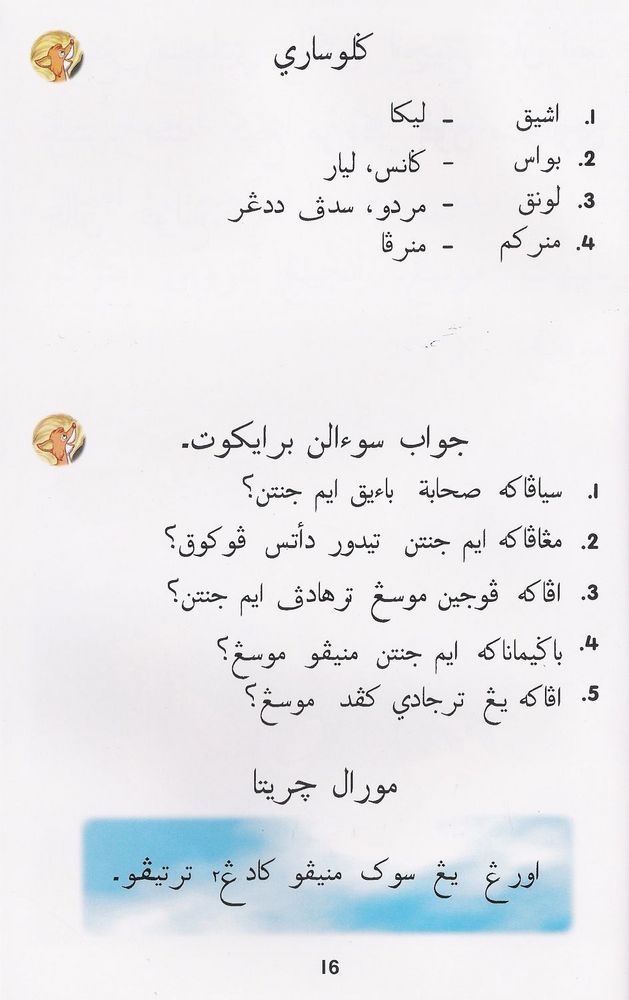 ݢلوساري
1. اشيق - ليکا
2. بواس - ݢانس، ليار
3. لونق - مردو، سدڤ ددڠر
4. منرکم - منرڤا
جواب سوءالن برايکوت.
1. سياڤاکه صحابة باءيق ايم جنتن؟
2. مڠاڤاکه ايم جنتن تيدور دأتس ڤوکوق؟
3. اڤاکه ڤوجين موسڠ ترهادڤ ايم جنتن؟
4. باݢيماناکه ايم جنتن منيڤو موسڠ؟
5. اڤاکه يڠ ترجادي کڤد موسڠ؟
مورال چريتا
اورڠ يڠ سوک منيڤو کادڠ٢ ترتيڤو.
16